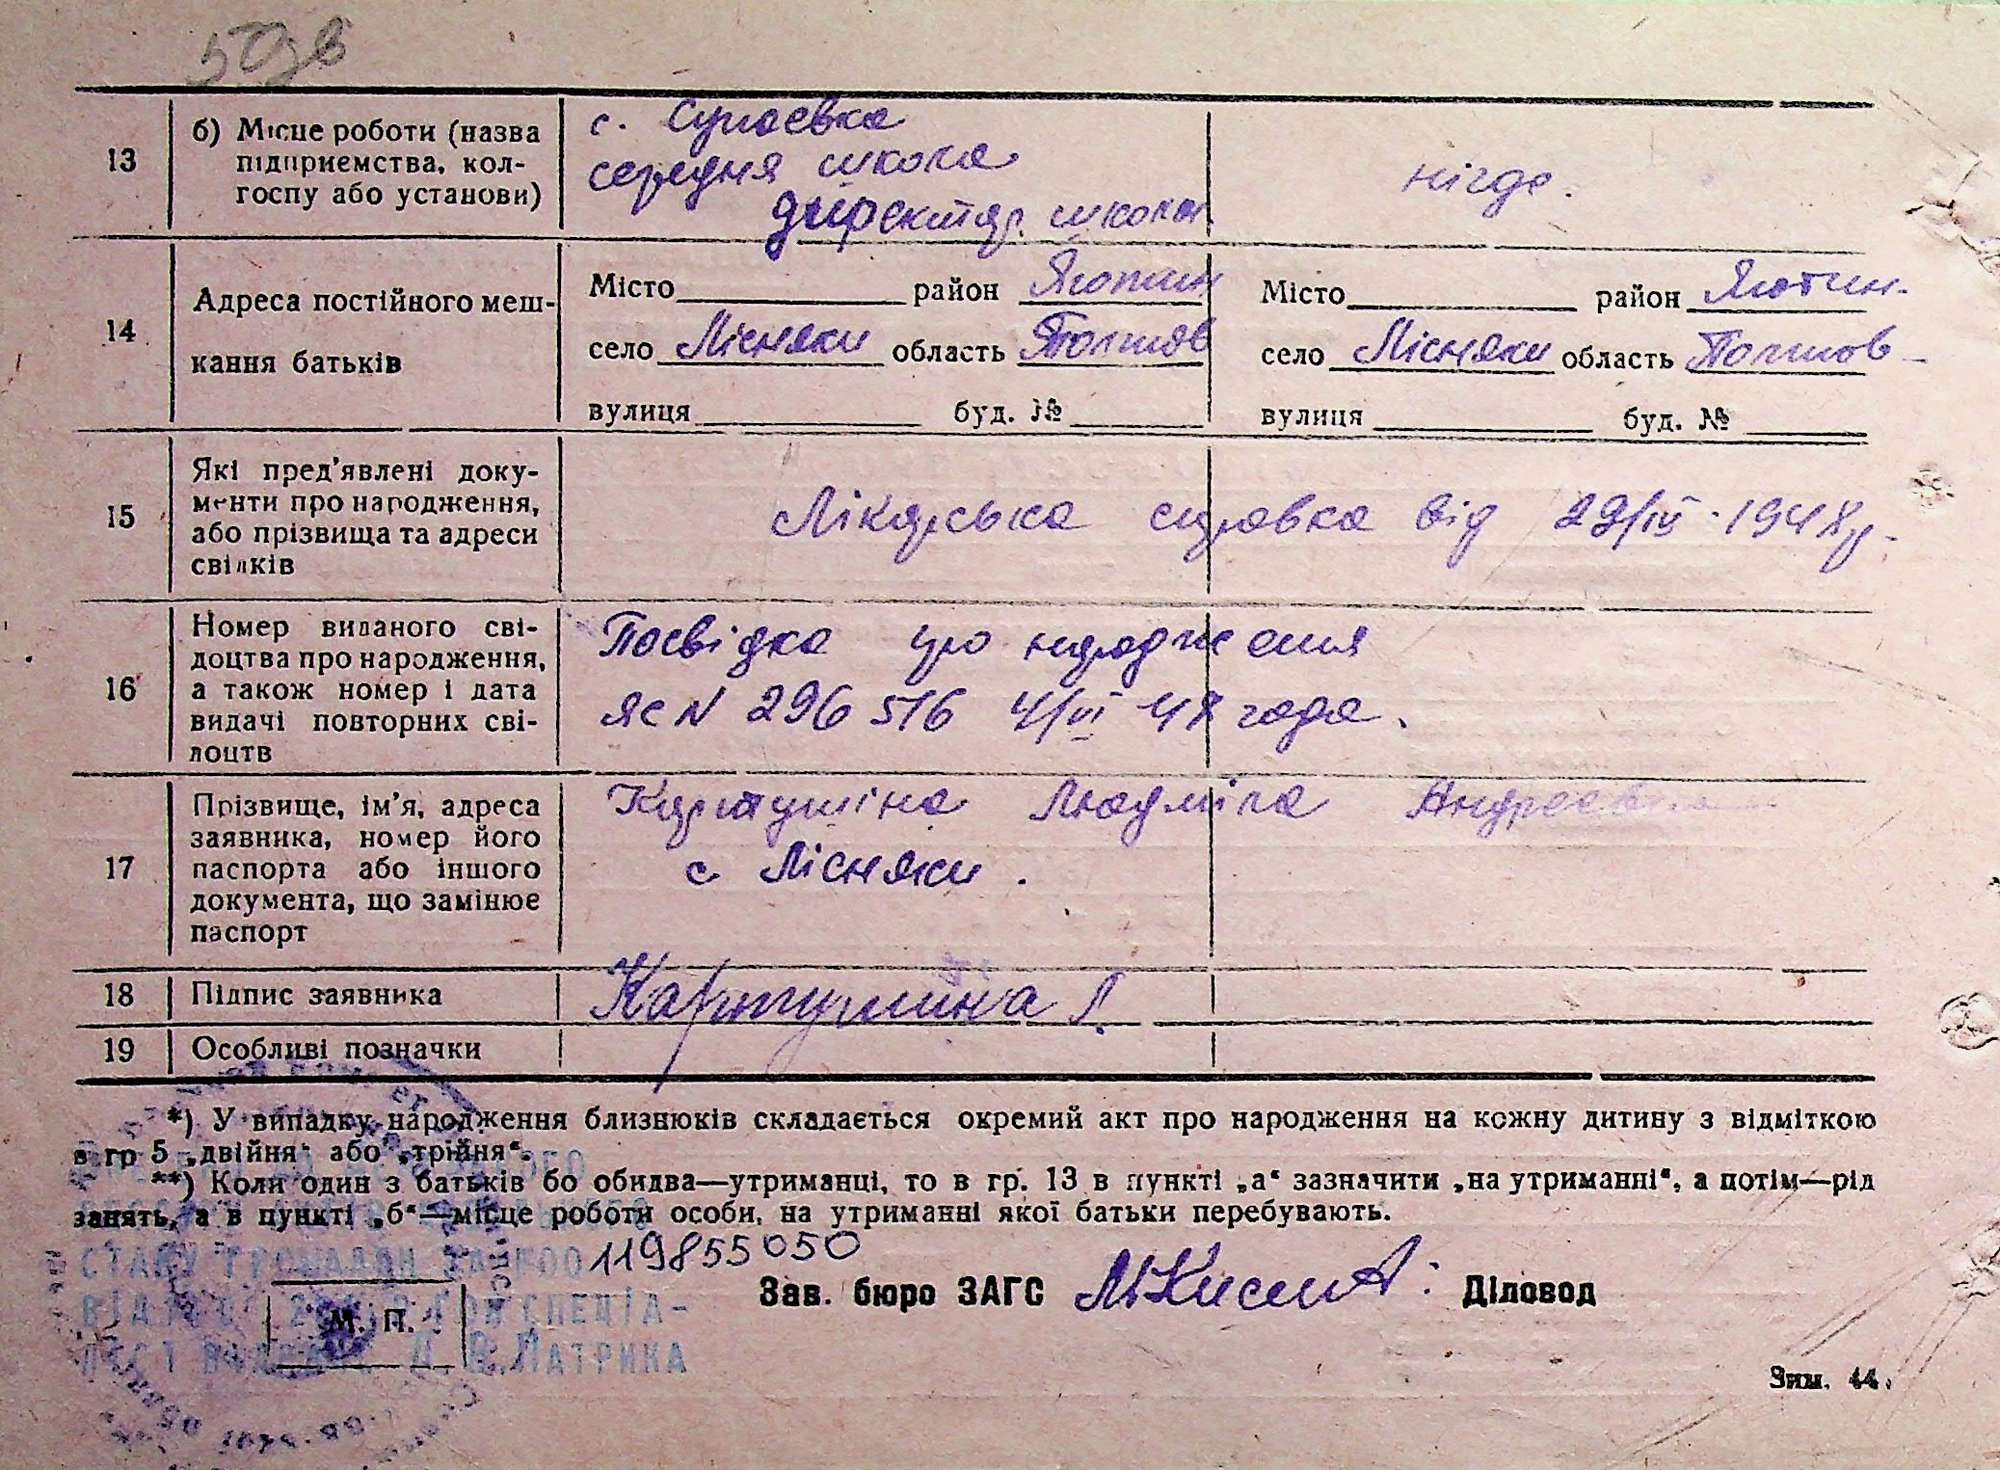 50зв
13
б) Місце роботи (назва
підприємства, кол-
госпу або установи)
с. Супоевка
середня школа
директор школи
нігде.
14
Адреса постійного меш-
кання батьків
Місто район Яготин
село Лісняки область Полтов
вулиця буд. №
Місто район Яготин-
село Лісняки область Полтов-
вулиця буд. №
15
Які пред’явлені доку-
менти про народження,
або прізвища та адреси
свідків
Лікарська справка від 29/IV-1948р.
16
Номер виданого сві-
доцтва про народження,
а також номер і дата
видачі повторних сві-
доцтв
Посвідка про народження
ЯС N 296516 4/VI-48 года.
17
Прізвище, ім’я, адреса
заявника, номер його
паспорта або іншого
документа, що замінює
паспорт
Картушіна Людміла
с Лісняки.
18
Підпис заявника
Картушіна Л.
19
Особливі позначки
*) У випадку народження близнюків складається окремий акт про народження на кожну дитину з відміткою
в гр 5 „двійня“ або „трійня“.
**) Коли один з батьків бо обидва—утриманці, то в гр. 13 в пункті „а“ зазначити „на утриманні“, а потім—рід
занять, а в пункті „б“—місце роботи особи, на утриманні якої батьки перебувають.
119855050
СТАНУ ГРОМАДЯН
СПЕЦІА-
ЛІСТ ПАТРИКА
М. П.
Зав. бюро ЗАГС
Діловод
Зим. 44.